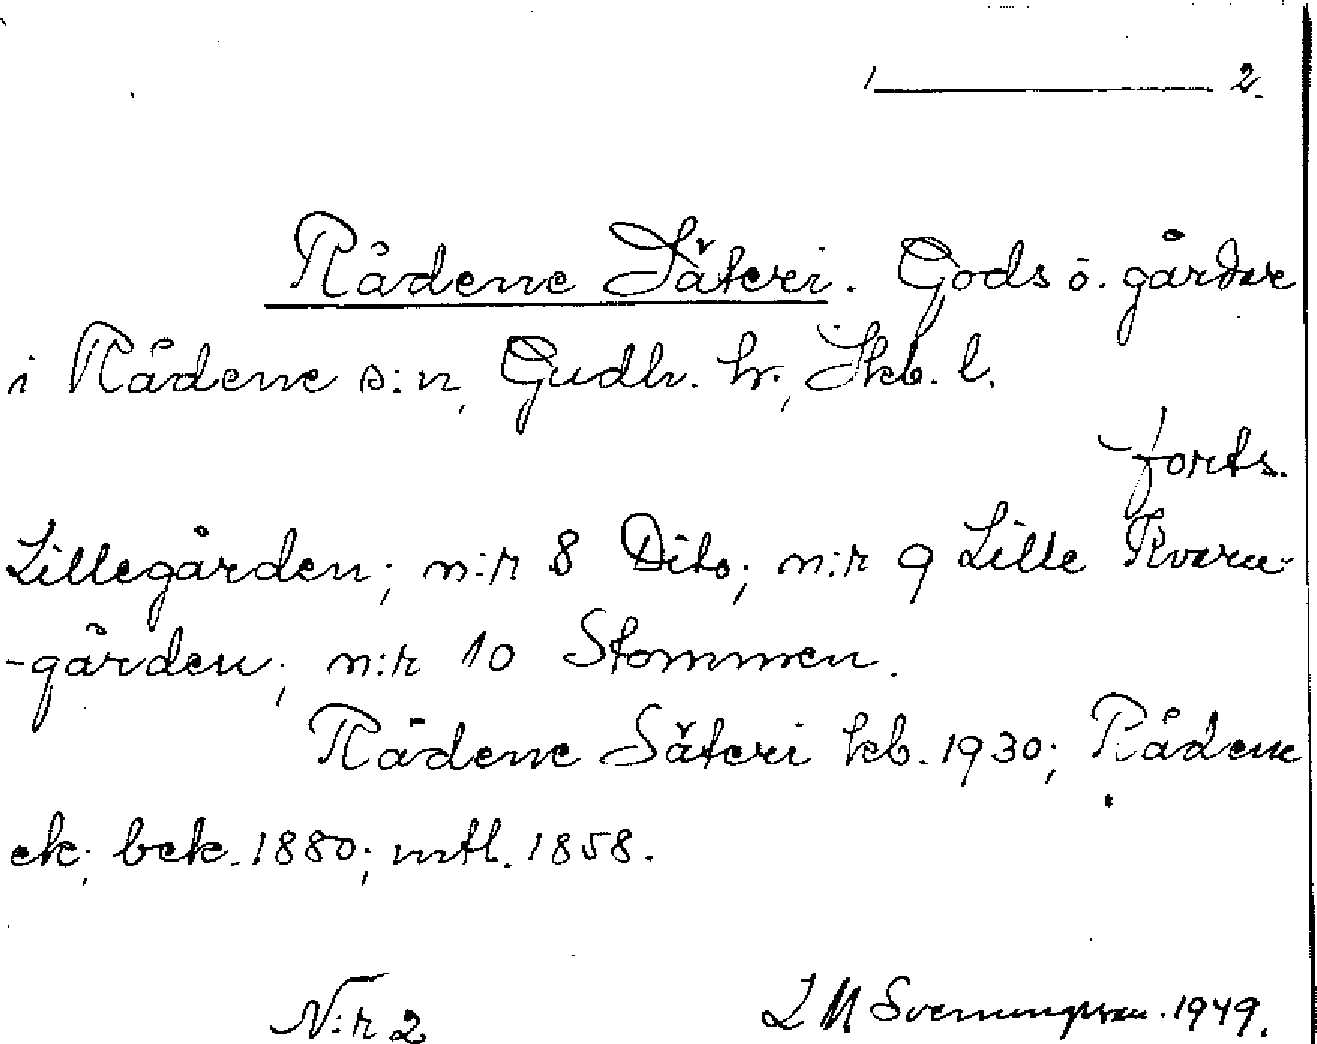 1 ———— 2.
Rådene Säteri. Gods o. gårdar
i Rådene s:n, Gudh. hr., Skb. l.
forts.
Lillegården; n:r 8 Dito; n:r 9 Lille Kvarn-
-gården; n:r 10 Stommen.
Rådene Säteri kb. 1930; Rådene
ek; bek. 1880; mtl. 1858.
N:r 2 L M Svenungsson. 1949.